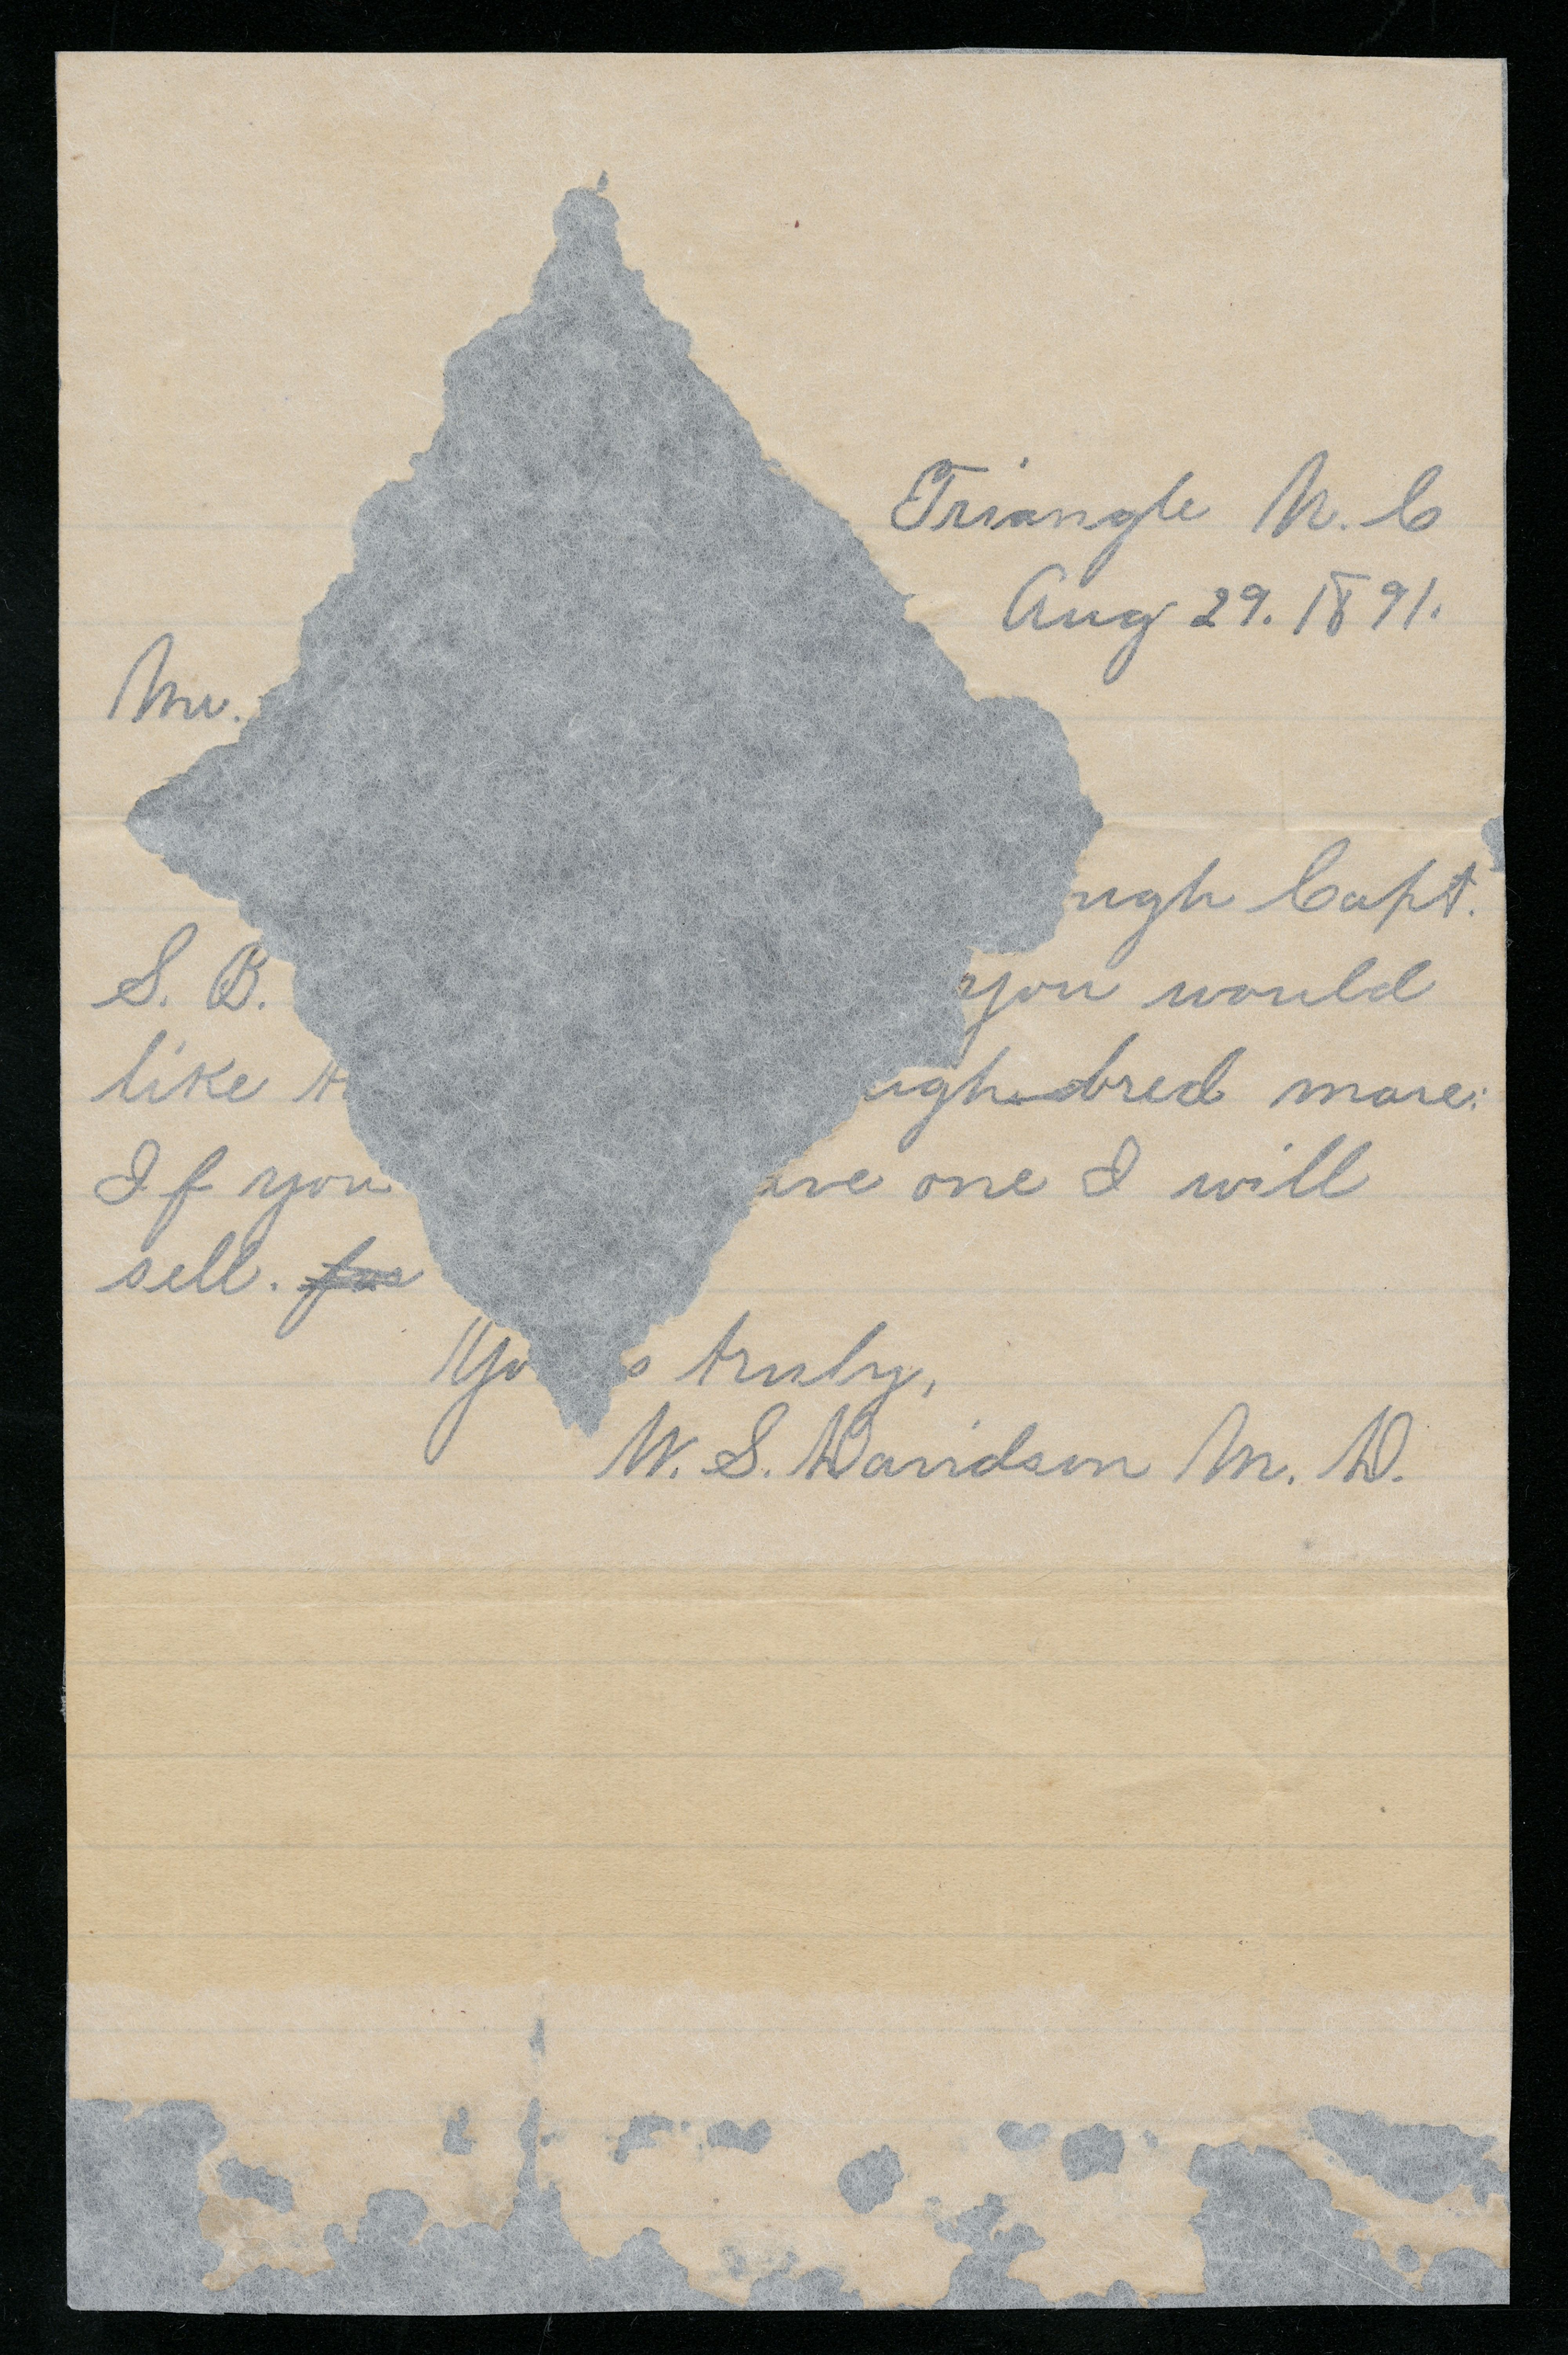 Triangle N. C
Aug 29. 1891.
Mr.
ugh Capt.
S. B. you would
like t ugh-bred mare:
If you ave one I will
sell. for
Yo s truly,
W. S. Davidson M. D.